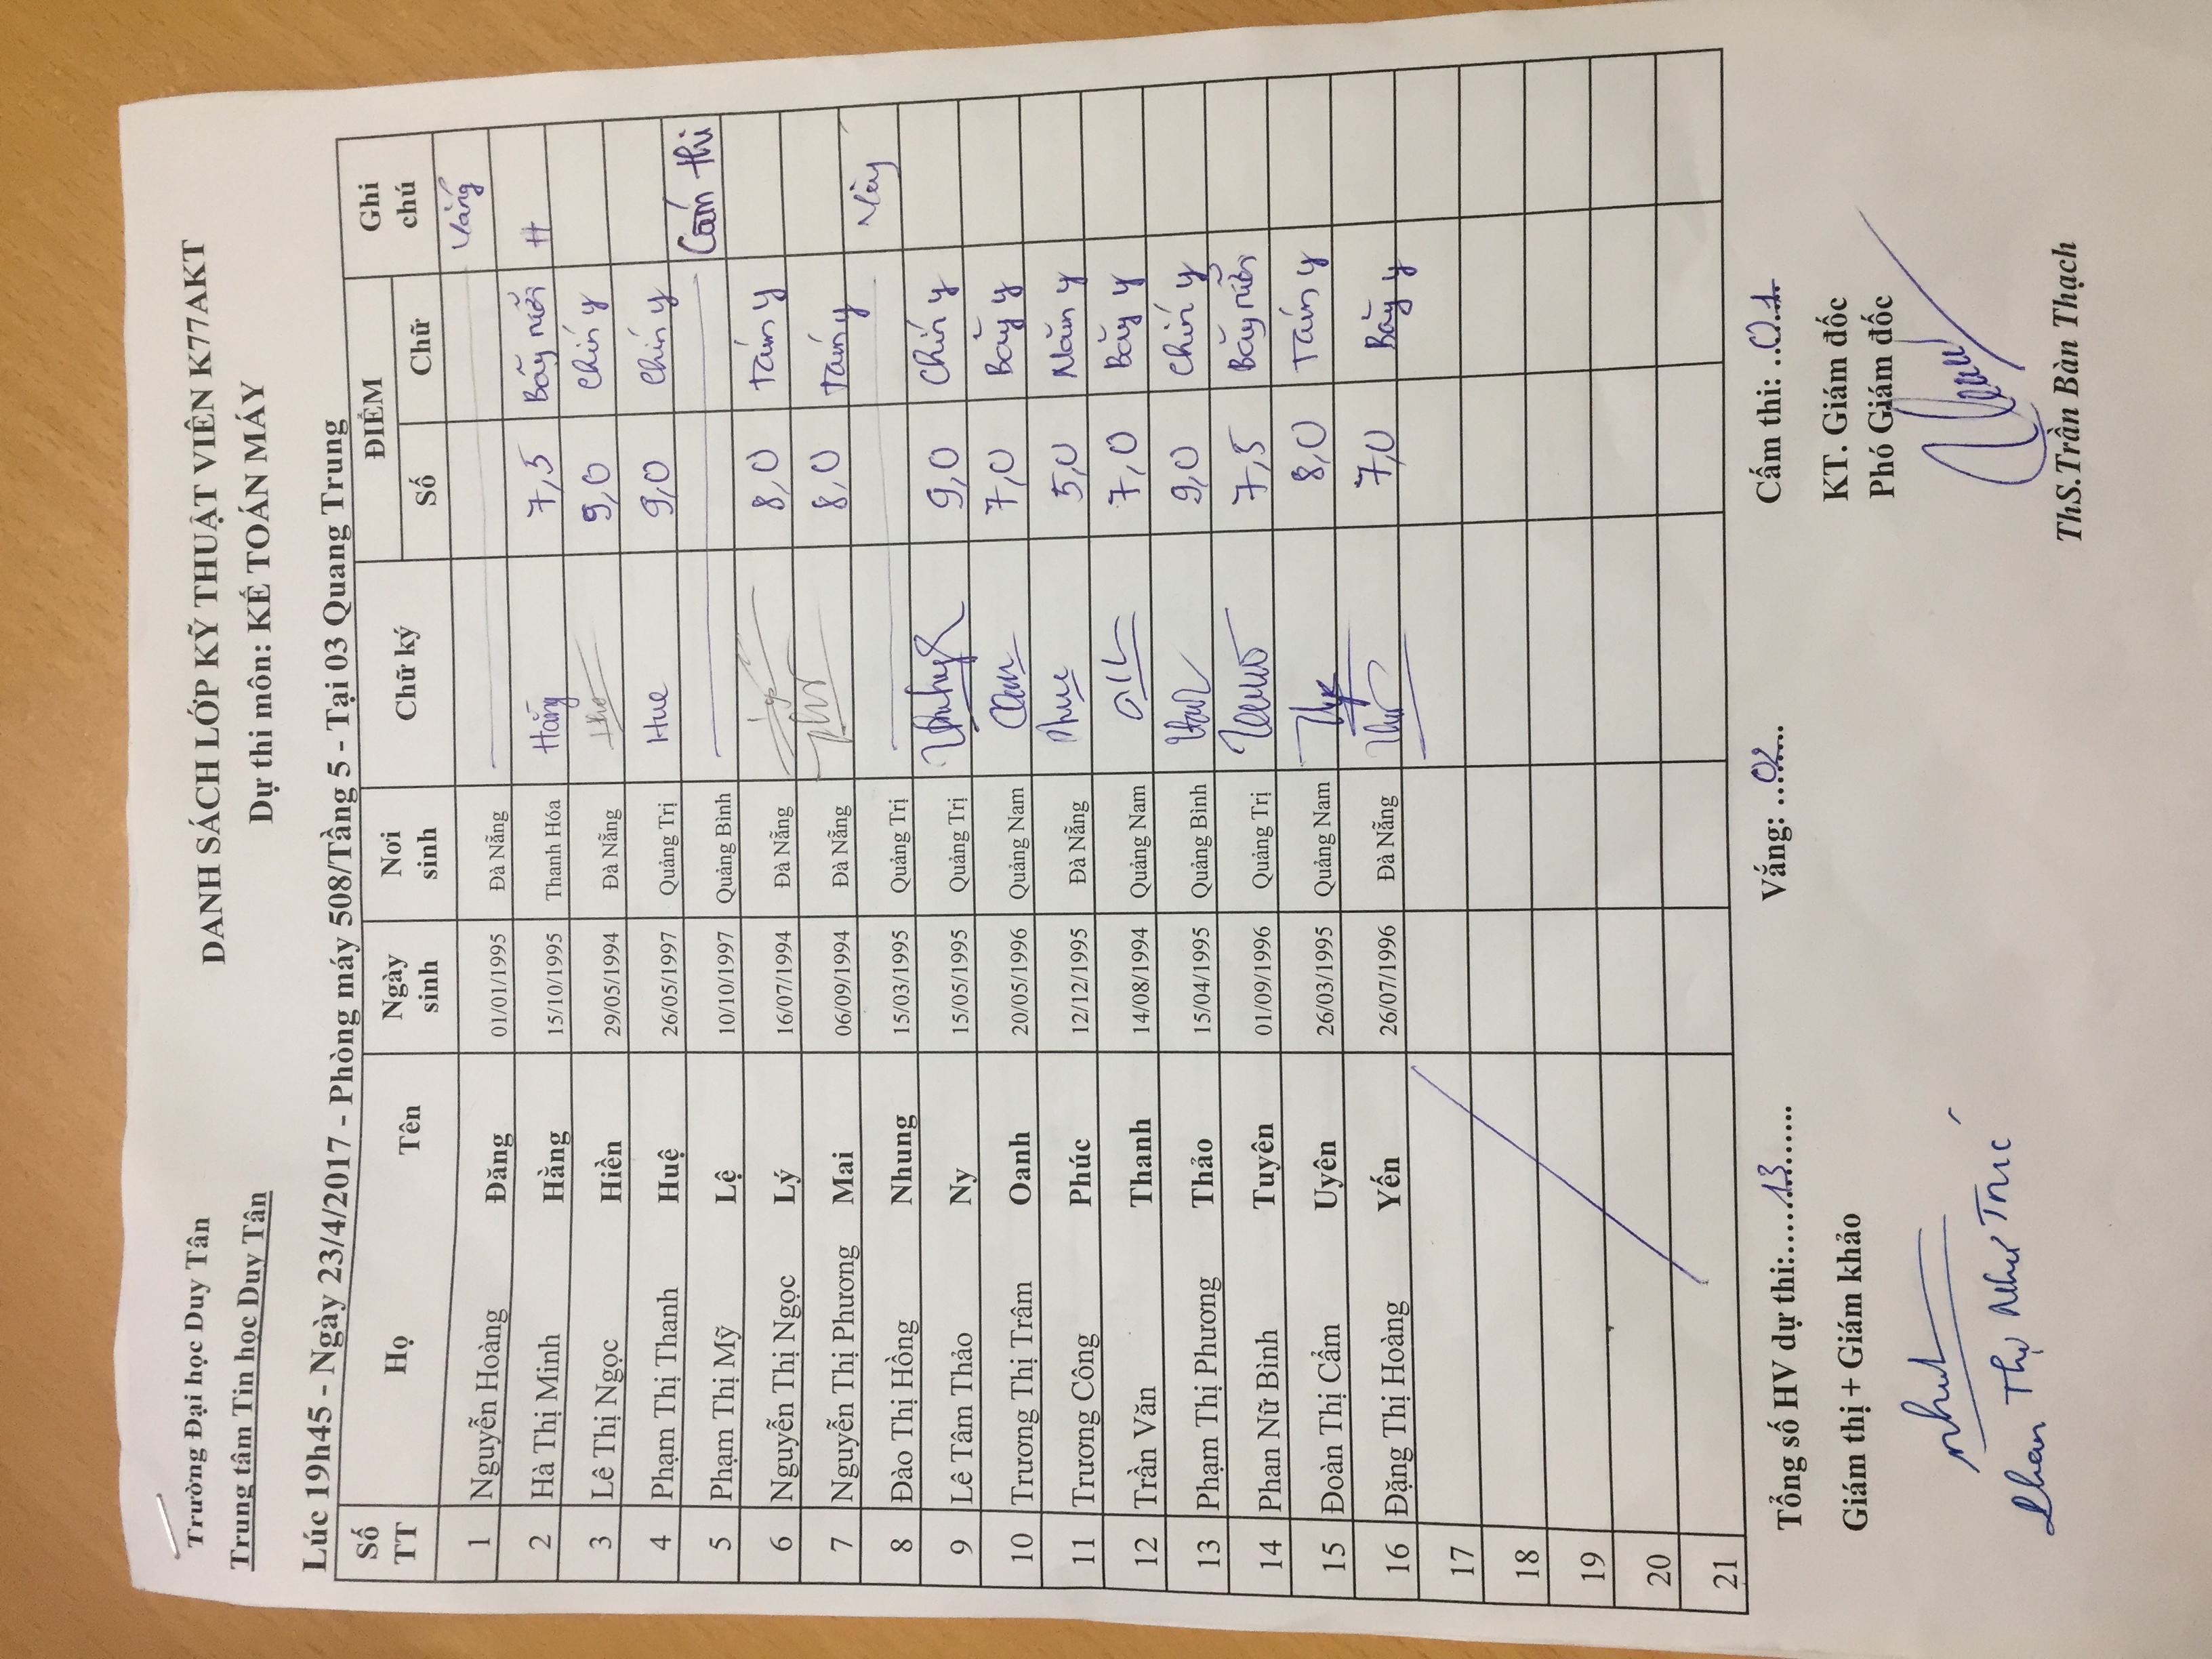 Trường Đại học Duy Tân
Trung tâm Tin học Duy Tân
DANH SÁCH LỚP KỸ THUẬT VIÊN K77AKT
Dự thi môn: KẾ TOÁN MÁY
Lúc 19h45 - Ngày 23/4/2017 - Phòng máy 508/Tầng 5 - Tại 03 Quang Trung
Số TT Họ Tên Ngày sinh Nơi sinh Chữ ký ĐIỂM Ghi chú
Số Chữ
1 Nguyễn Hoàng Đăng 01/01/1995 Đà Nẵng Vắng
2 Hà Thị Minh Hằng 15/10/1995 Thanh Hóa Hằng 7,5 Bảy rưỡi
3 Lê Thị Ngọc Hiền 29/05/1994 Đà Nẵng 9,0 Chín y
4 Phạm Thị Thanh Huệ 26/05/1997 Quảng Trị Hue 9,0 Chín y
5 Phạm Thị Mỹ Lệ 10/10/1997 Quảng Bình Cấm thi
6 Nguyễn Thị Ngọc Lý 16/07/1994 Đà Nẵng 8,0 Tám y
7 Nguyễn Thị Phương Mai 06/09/1994 Đà Nẵng 8,0 Tám y
8 Đào Thị Hồng Nhung 15/03/1995 Quảng Trị
9 Lê Tâm Thảo Ny 15/05/1995 Quảng Trị 9,0 Chín y
10 Trương Thị Trâm Oanh 20/05/1996 Quảng Nam 7,0 Bảy y
11 Trương Công Phúc 12/12/1995 Đà Nẵng 5,0 Năm y
12 Trần Văn Thanh 14/08/1994 Quảng Nam 7,0 Bảy y
13 Phạm Thị Phương Thảo 15/04/1995 Quảng Bình 9,0 Chín y
14 Phan Nữ Bình Tuyên 01/09/1996 Quảng Trị 7,5 Bảy rưỡi
15 Đoàn Thị Cẩm Uyên 26/03/1995 Quảng Nam 8,0 Tám y
16 Đặng Thị Hoàng Yến 26/07/1996 Đà Nẵng 7,0 Bảy y
17
18
19
20
21
Tổng số HV dự thi:.....13....... Vắng: ...02..... Cấm thi: ..01..
Giám thị + Giám khảo KT. Giám đốc
Phó Giám đốc
Phan Thị Như Trúc
ThS.Trần Bàn Thạch